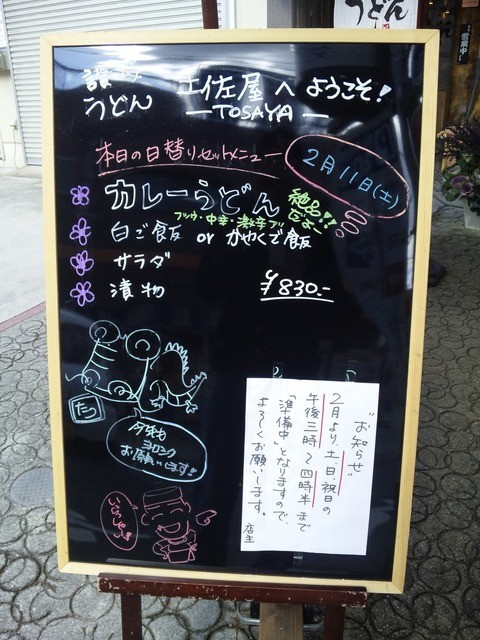 うどん
営業中
讃岐
うどん
土佐屋へようこそ!
―TOSAYA―
本日の日替りセットメニュー
2月11日(土)
カレーうどん
絶品!!
だよー
フツウ・中辛・激辛
白ご飯 or かやくご飯
サラダ
漬物
¥830.-
たつ
今年も
ヨロシク
お願いします!
いらっしゃい!
"お知らせ"
2月より、土、日、祝日の
午後三時~四時半まで
「準備中」となりますので、
よろしくお願いします。
店主